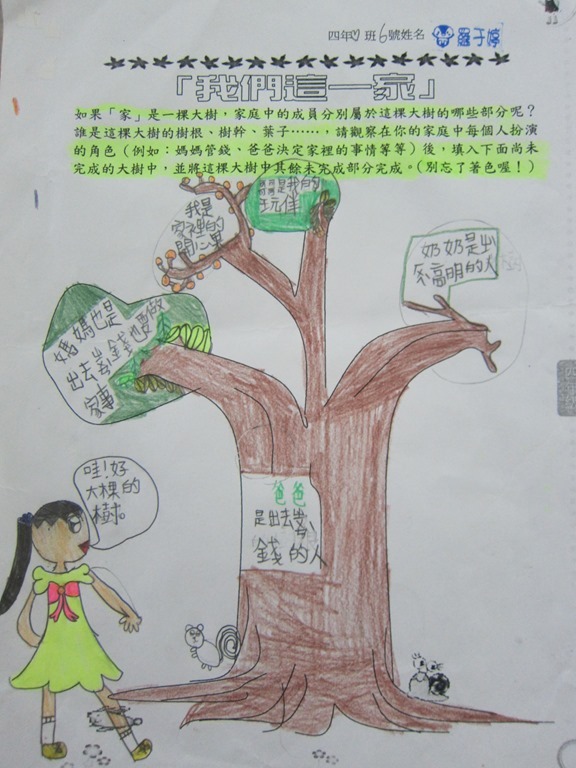 四年 班6號姓名 羅子婷
「我們這一家」
如果「家」是一棵大樹，家庭中的成員分別屬於這棵大樹的哪些部分呢？
誰是這棵大樹的樹根、樹幹、葉子……，請觀察在你的家庭中每個人扮演
的角色（例如：媽媽管錢、爸爸決定家裡的事情等等）後，填入下面尚未
完成的大樹中，並將這棵大樹中其餘未完成部分完成。（別忘了著色喔！）
我是
家裡的
開心果
是我的
玩伴
奶奶是出
高明的人
媽媽也是
出去
錢也要做
家事
哇！好
大棵的
樹。
爸爸
是出去
錢的人